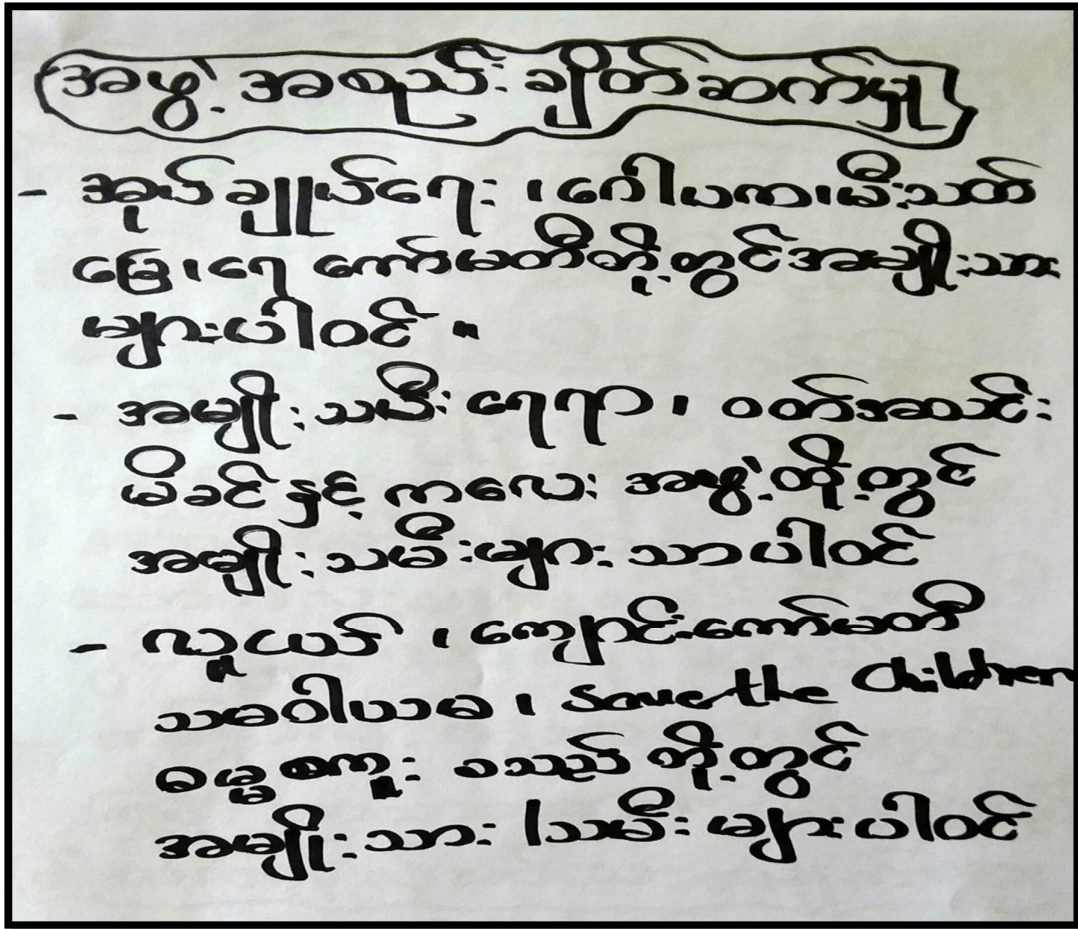 အဖွဲ့ အစည်း ချိတ်ဆက်မှု
- အုပ်ချုပ်ရေး ၊ ဂေါပက၊မီးသတ်
မြေ၊ရေ ကော်မတီတို့တွင်အမျိုးသား
များပါဝင် ။
- အမျိုးသမီး ရေးရာ ၊ ဝတ်အသင်း
မိခင်နှင့် ကလေး အဖွဲ့တို့တွင်
အမျိုးသမီးများ သာပါဝင်
- လူငယ် ၊ ကျောင်းကော်မတီ
သမဝါယမ ၊ Save the Children
ဓမ္မစကူး စသည် တို့တွင်
အမျိုးသား /သမီး များပါဝင်